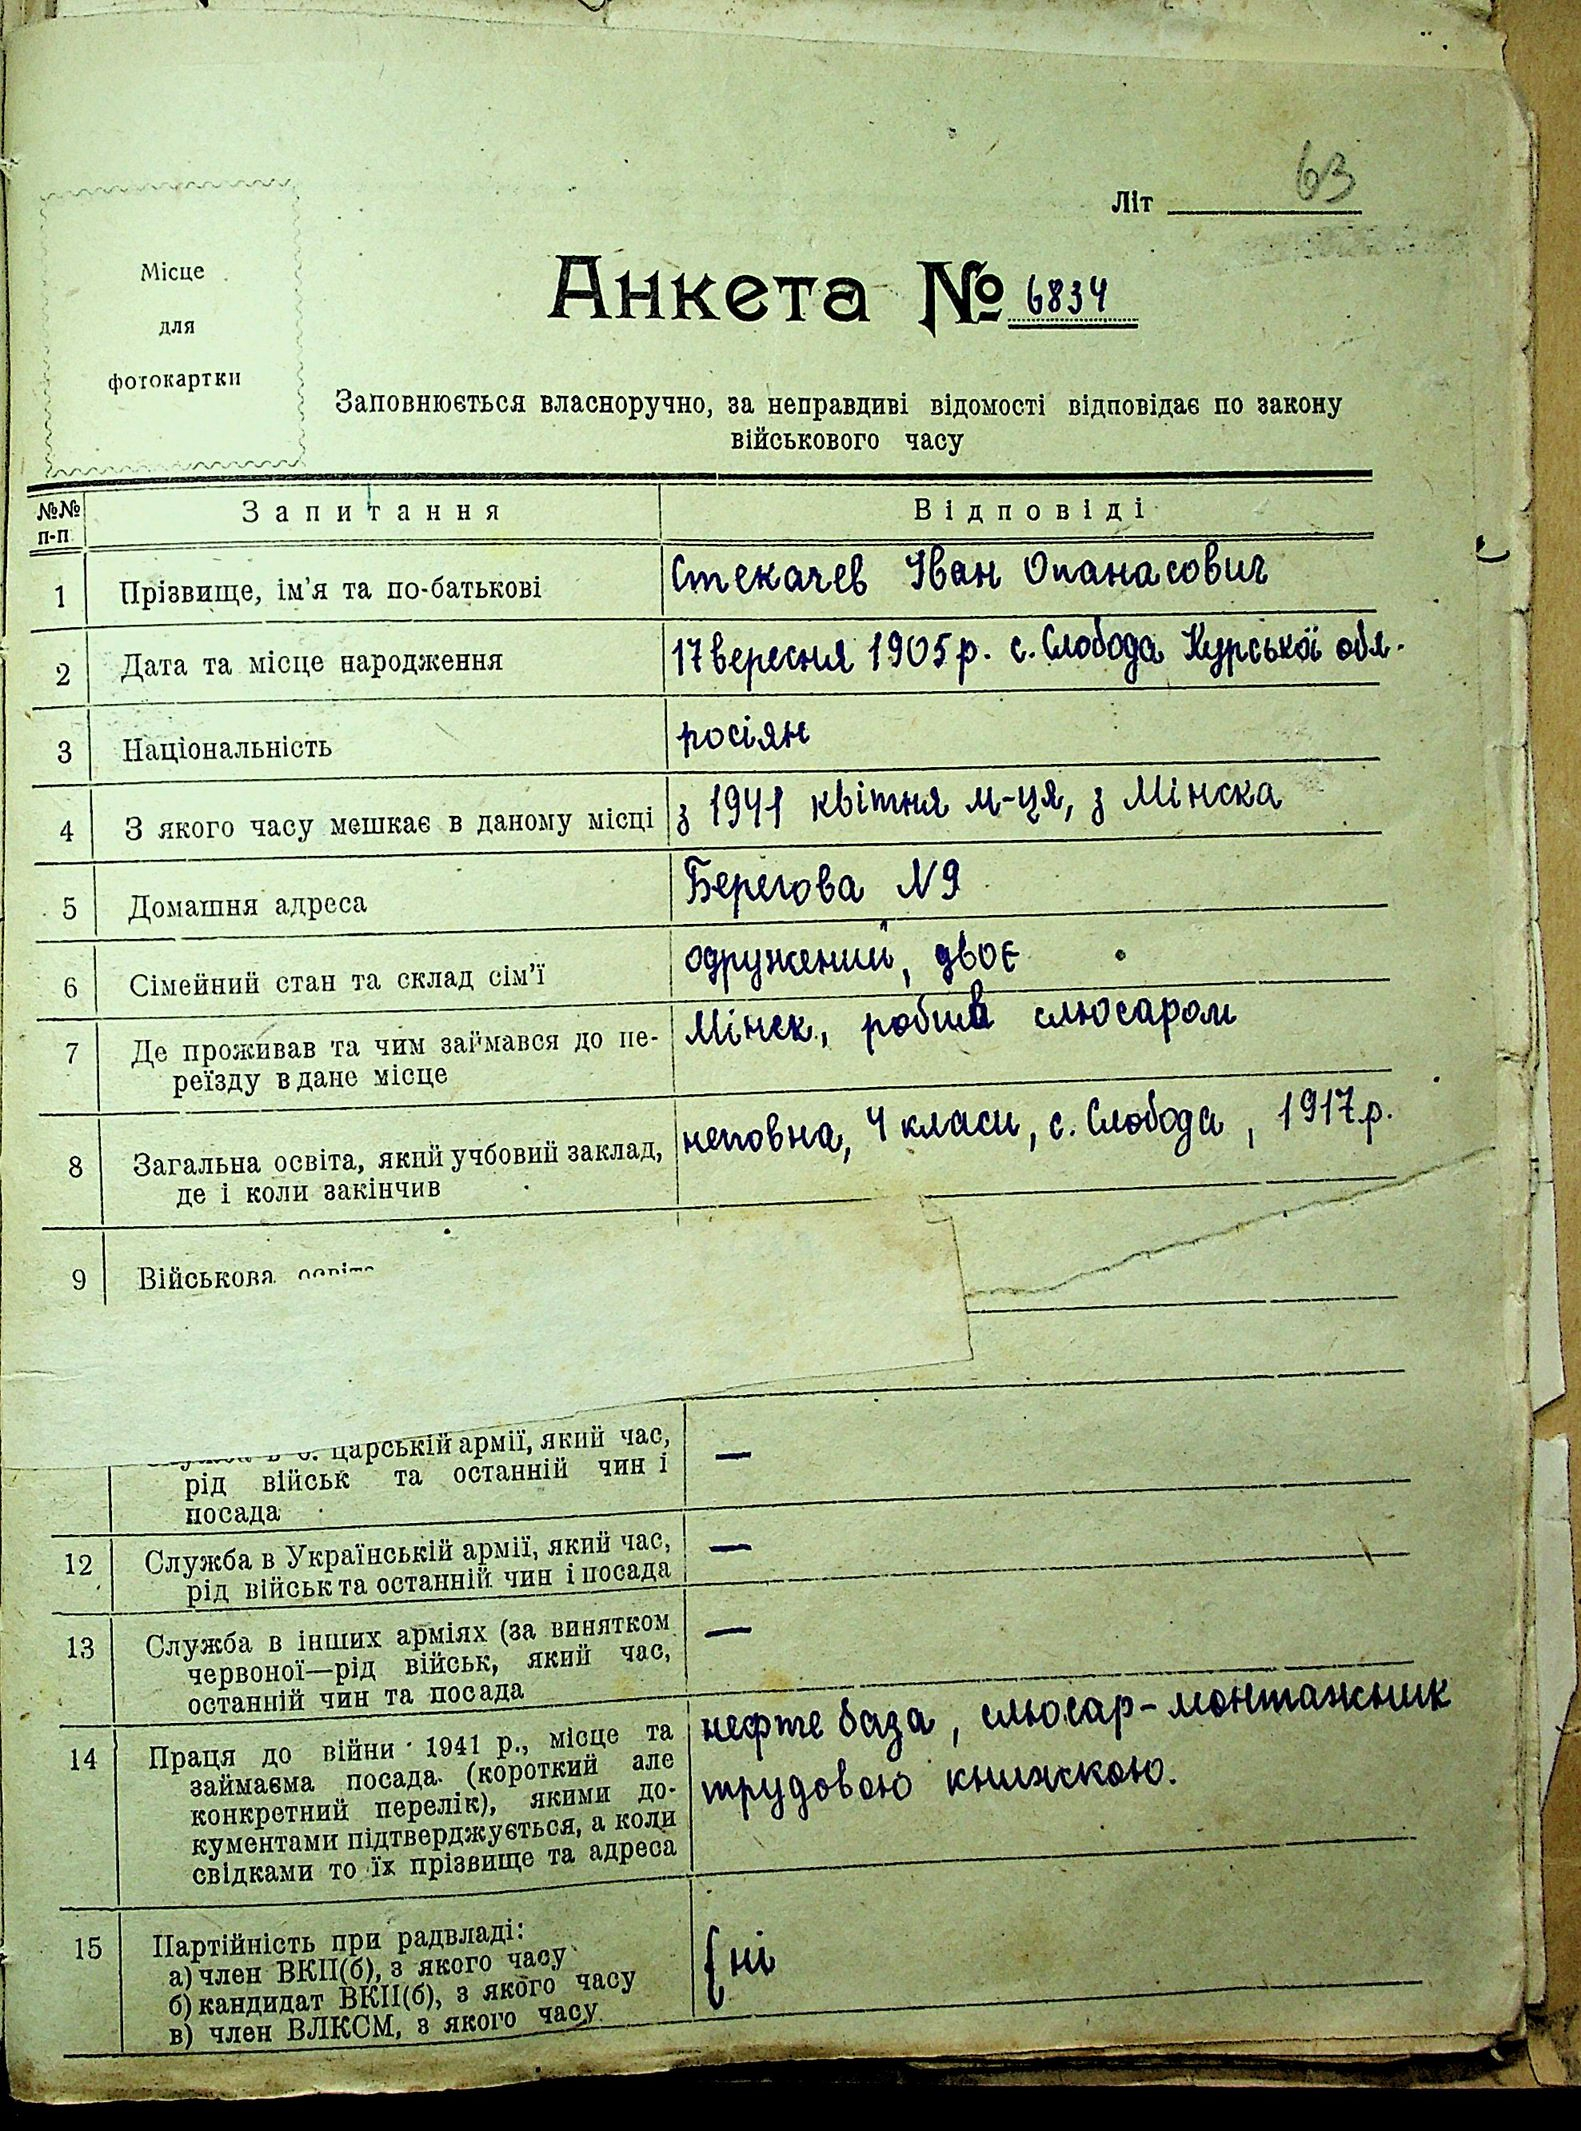 63
Літ
Місце
для
фотокартки
Анкета № 6834
Заповнюється власноручно, за неправдиві відомості відповідає по закону
військового часу
№№
п-п
Запитання
Відповіді
1 Прізвище, ім'я та по-батькові Стекачев Іван Опанасович
2 Дата та місце народження 17 вересня 1905 р. с. Слобода Курської обл.
3 Національність росіян
4 З якого часу мешкає в даному місці з 1941 квітня м-ця, з Мінска
5 Домашня адреса Берегова N9
6 Сімейний стан та склад сім'ї одружений, двоє
7 Де проживав та чим займався до пе-
реїзду в дане місце
Мінск, робив слюсаром
8 Загальна освіта, який учбовий заклад,
де і коли закінчив
неповна, 4 класи, с. Слобода, 1917 р.
9 Військова
царській армії, який час,
рід військ та останній чин і
посада
—
12 Служба в Українській армії, який час,
рід військ та останній чин і посада
—
13 Служба в інших арміях (за винятком
червоної—рід військ, який час,
останній чин та посада
—
14 Праця до війни 1941 р., місце та
займаєма посада (короткий але
конкретний перелік), якими до-
кументами підтверджується, а коли
свідками то їх прізвище та адреса
нефте база, слюсар-монтажник
трудовою книжкою.
15 Партійність при радвладі:
а) член ВКП(б), з якого часу
б) кандидат ВКП(б), з якого часу
в) член ВЛКСМ, з якого часу
{ ні